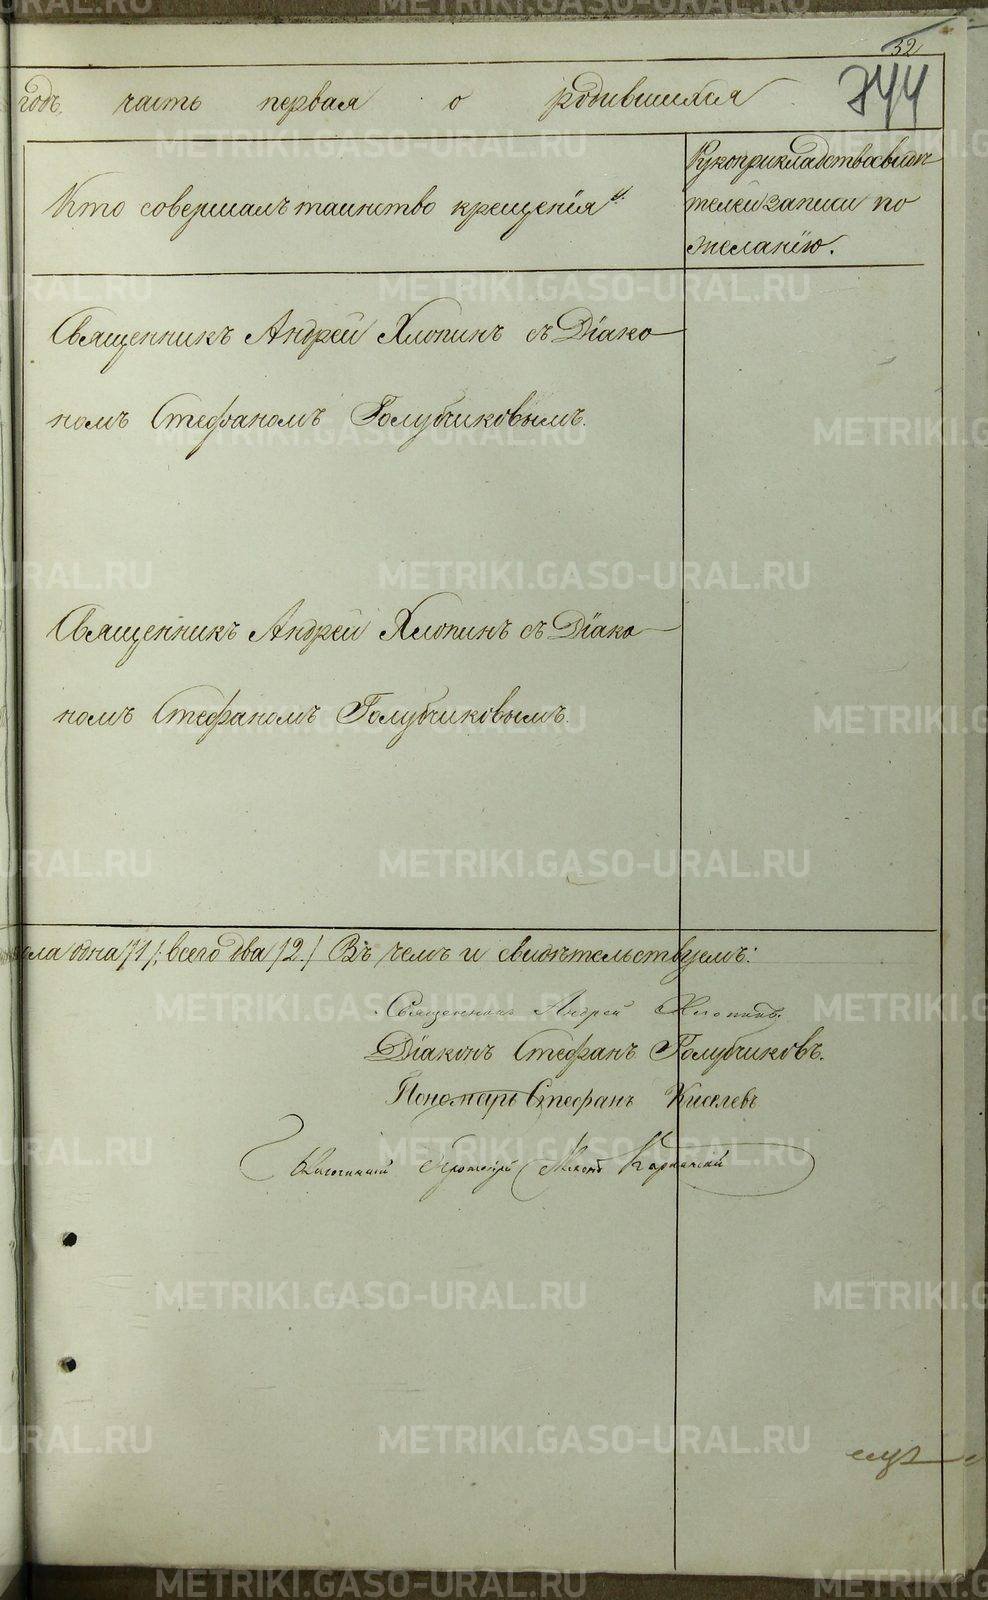 32
744
годъ, часть первая о родившихся
Кто совершалъ таинство крещенія
Рукоприкладство свидѣ
телей записи по
желанію.
Священникъ Андрей Хлопинъ съ Діако
номъ Стефаномъ Голубчиковымъ.
Священникъ Андрей Хлопинъ съ Діако
номъ Стефаномъ Голубчиковымъ.
пола одна /1/; всего два /2./ Въ чемъ и свидѣтельствуемъ:
Священникъ Андрей Хлопинъ
Діаконъ Стефанъ Голубчиковъ.
Пономарь Стефанъ Киселевъ
METRIKI.GASO-URAL.RU